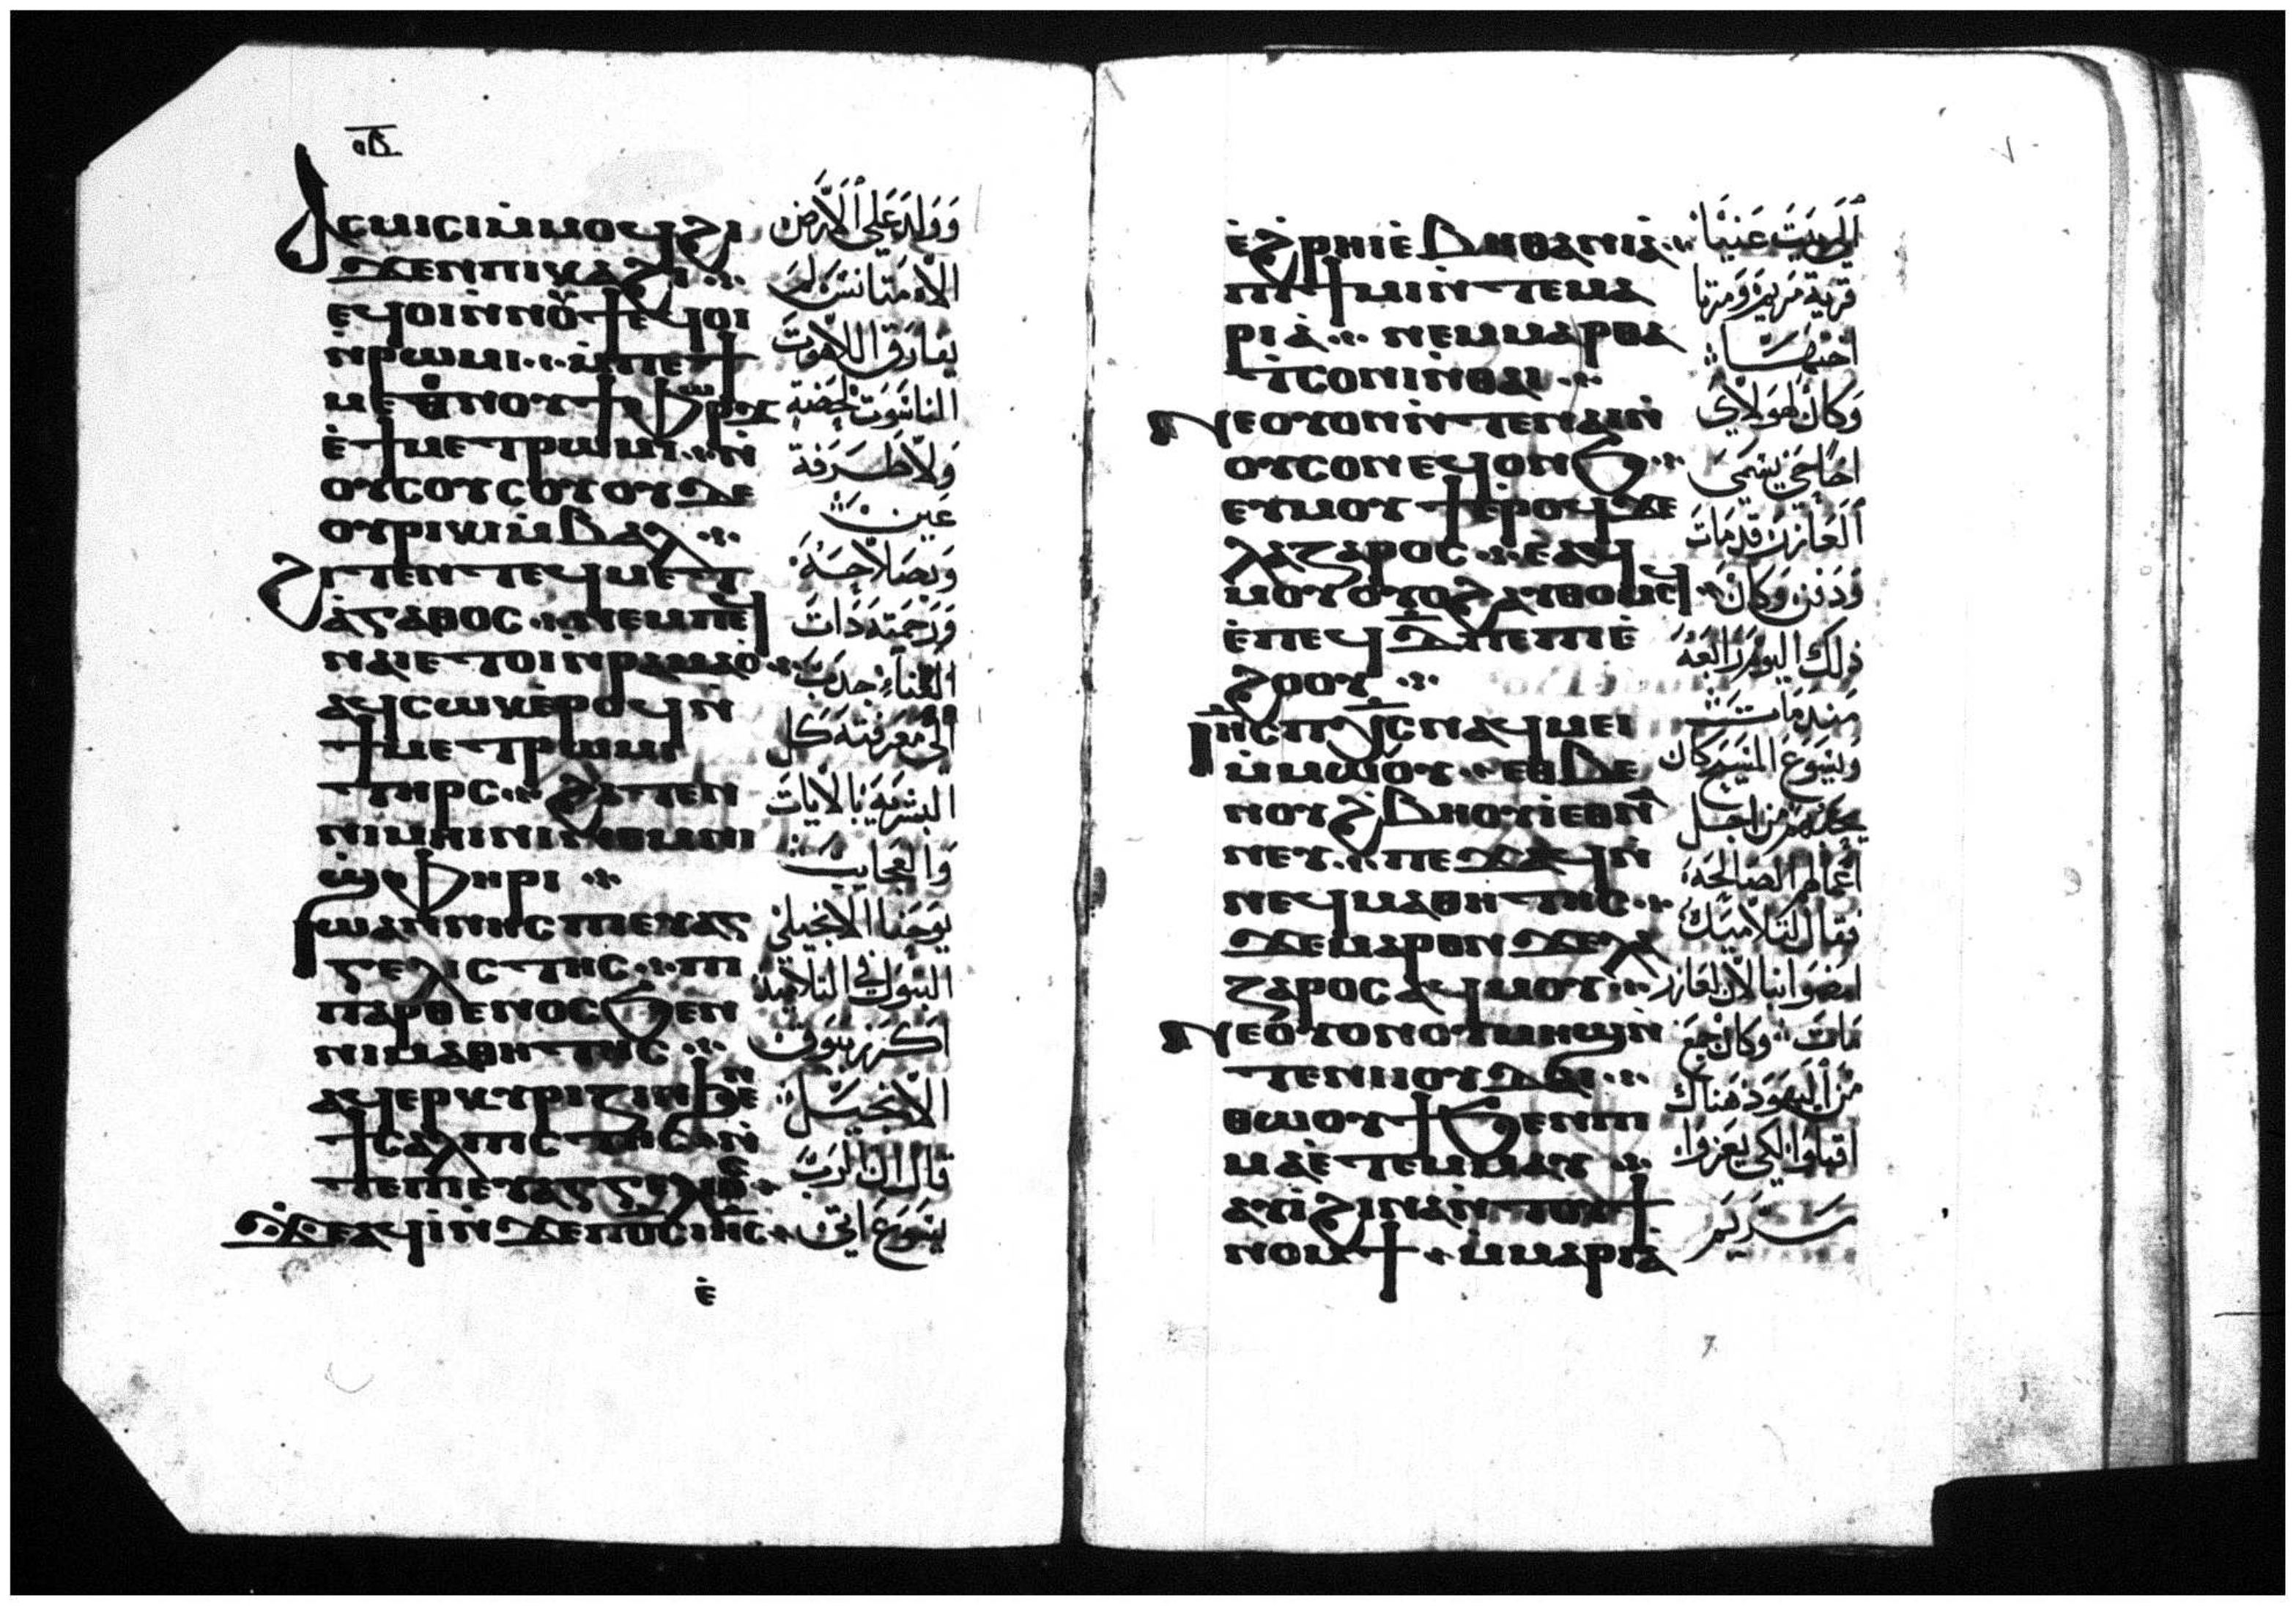 ⲟⲃ
ⲁⲥⲙⲓⲥⲓⲙ̇ⲙⲟϥϩⲓ
ϫⲉⲛⲡⲓⲕⲁϩⲓ
ⲉϥⲟⲓⲛ̇ⲛⲟⲩϯⲉϥⲟⲓ
ⲛ̇ⲣⲱⲙⲓ ⲙ̇ⲡⲉϯ
ⲙⲉⲑⲛⲟⲩϯⲫⲱⲣϫ
ⲉ̇ϯⲙⲉⲧⲣⲱⲙⲓ ⲛ̇
ⲟⲩⲥⲟⲩⲥⲟⲩⲟⲩⲇⲉ
ⲟⲩⲣⲓⲕⲓⲙ̇ⲃⲁⲗ
ϩⲓⲧⲉⲛⲧⲉϥⲙⲉⲧ
ⲁ̇ⲅⲁⲑⲟⲥ ⲛⲉⲙⲡⲉϥ
ⲛⲁⲓⲉⲧⲟⲓⲛ̇ⲣⲁⲙⲁⲟ̇
ⲁϥⲥⲱⲕⲉ̇ⲣⲟϥⲛ̇
ϯⲙⲉⲧⲣⲱⲙⲓ
ⲧⲏⲣⲥ ϩⲓⲧⲉⲛ
ⲛⲓⲙⲏⲓⲛⲓⲛⲉⲙⲛⲓ
ϣ̇ⲫⲏⲣⲓ
ⲓⲱⲁⲛⲛⲏⲥⲡⲓⲉⲩⲁⲅ
ⲅⲉⲗⲓⲥⲧⲏⲥ ⲡⲓ
ⲡⲁⲣⲑⲉⲛⲟⲥϧⲉⲛ
ⲛⲓⲙⲁⲑⲏⲧⲏⲥ
ⲁϥⲉⲣⲕⲩⲣⲓⲍⲓⲛϧⲉⲛ
ϯⲥⲁⲗⲡⲓⲥⲧⲏⲥ ⲛ̇
ⲧⲉⲡⲓⲉⲩⲁⲅⲅⲉⲗⲓⲟⲛ
ϫⲉⲁϥⲓ̇ⲛ̇ϫⲉⲡⲟ̅ⲥ̅ⲓⲏ̅ⲥ̅
ⲉ̇
وَوَلدَ عَلي الأرَض
الاه مَتانسَ لم
يفارق اللاهوت
الناسَوت لحَضة
وَلا طَرفة
عَين
وَبصَلاحَهُ
وَرَحمَته ذات
الغناء جدَب
الى مَعرفته كل
البشريَة بالايات
وَالعجايب
يوحَنا الانجيلي
البتول في التلاميد
اكرز ببَوق
الانجيل
قال ان الرَب
يسَوَع اتى
ⲉ̇ϩⲣⲏⲓⲉ̇ⲃⲏⲑⲁⲛⲓⲁ̇
ⲡⲓϯⲙⲓⲛ̇ⲧⲉⲙⲁ
ⲣⲓⲁ̇ ⲛⲉⲙⲙⲁⲣⲑⲁ
ⲧ̇ⲥⲟⲛⲓⲛ̇ⲑⲁⲓ
ⲛⲉⲟⲩⲟⲛⲛ̇ⲧⲉⲛⲁⲓⲛ̇
ⲟⲩⲥⲟⲛⲉϥⲟⲛϧ
ⲉⲩⲙⲟⲩϯⲉ̇ⲣⲟϥϫⲉ
ⲗⲁⲍⲁⲣⲟⲥ ⲉ̇ⲁϥ
ⲙⲟⲩⲟⲩⲟϩⲁⲩⲑⲟⲙⲥϥ
ⲉ̇ⲡⲉϥⲇ̅ⲡⲉⲡⲓⲉ̇
ϩⲟⲟⲩ
ⲓⲏ̅ⲥ̅ⲡⲭ̅ⲥ̅ⲛⲁϥⲙⲉⲓ
ⲙ̇ⲙⲱⲟⲩ ⲉⲑⲃⲉ
ⲛⲟⲩϩⲃⲏⲟⲩⲓ̇ⲉⲑⲛⲁ
ⲛⲉⲩ ⲡⲉϫⲁϥⲛ̇
ⲛⲉϥⲙⲁⲑⲏⲧⲏⲥ
ϫⲉⲙⲁⲣⲟⲛϫⲉⲗⲁ
ⲍⲁⲣⲟⲥⲁϥⲙⲟⲩ
ⲛⲉⲟ̇ⲩⲟⲛⲟⲩⲙⲏϣⲛ̇
ⲧⲉⲛⲓⲓⲟⲩⲇⲁⲓ
ⲑⲱⲟⲩϯϧⲉⲛⲡⲓ
ⲙⲁⲉ̇ⲧⲉⲙⲙⲁⲩ
ⲁⲩⲓ̇ϩⲓⲛⲁⲛ̇ⲧⲟⲩϯ
ⲛⲟⲙϯ ⲙ̇ⲙⲁⲣⲓⲁ̇
الى بَيتَ عَنيَا
قريَة مَريم وَمَرتا
اختهَا
وَكان لهَولاى
اخاً حَي يسَمَى
ألعَازر قد مَاتَ
وَدَفن وَكانَ
ذلك اليوم رَابعَهُ
مَند مَات
وَيسَوع المسَيح كان
يحَبهم مَن اجل
اعَمَالهم الصَالحَة
فقال لتلاميده
امضوا بنا لان لعازر
مَات وَكان جمَع
مَن اليهَود هَناك
اقبلوَا لكي يعَزوا
مَريم